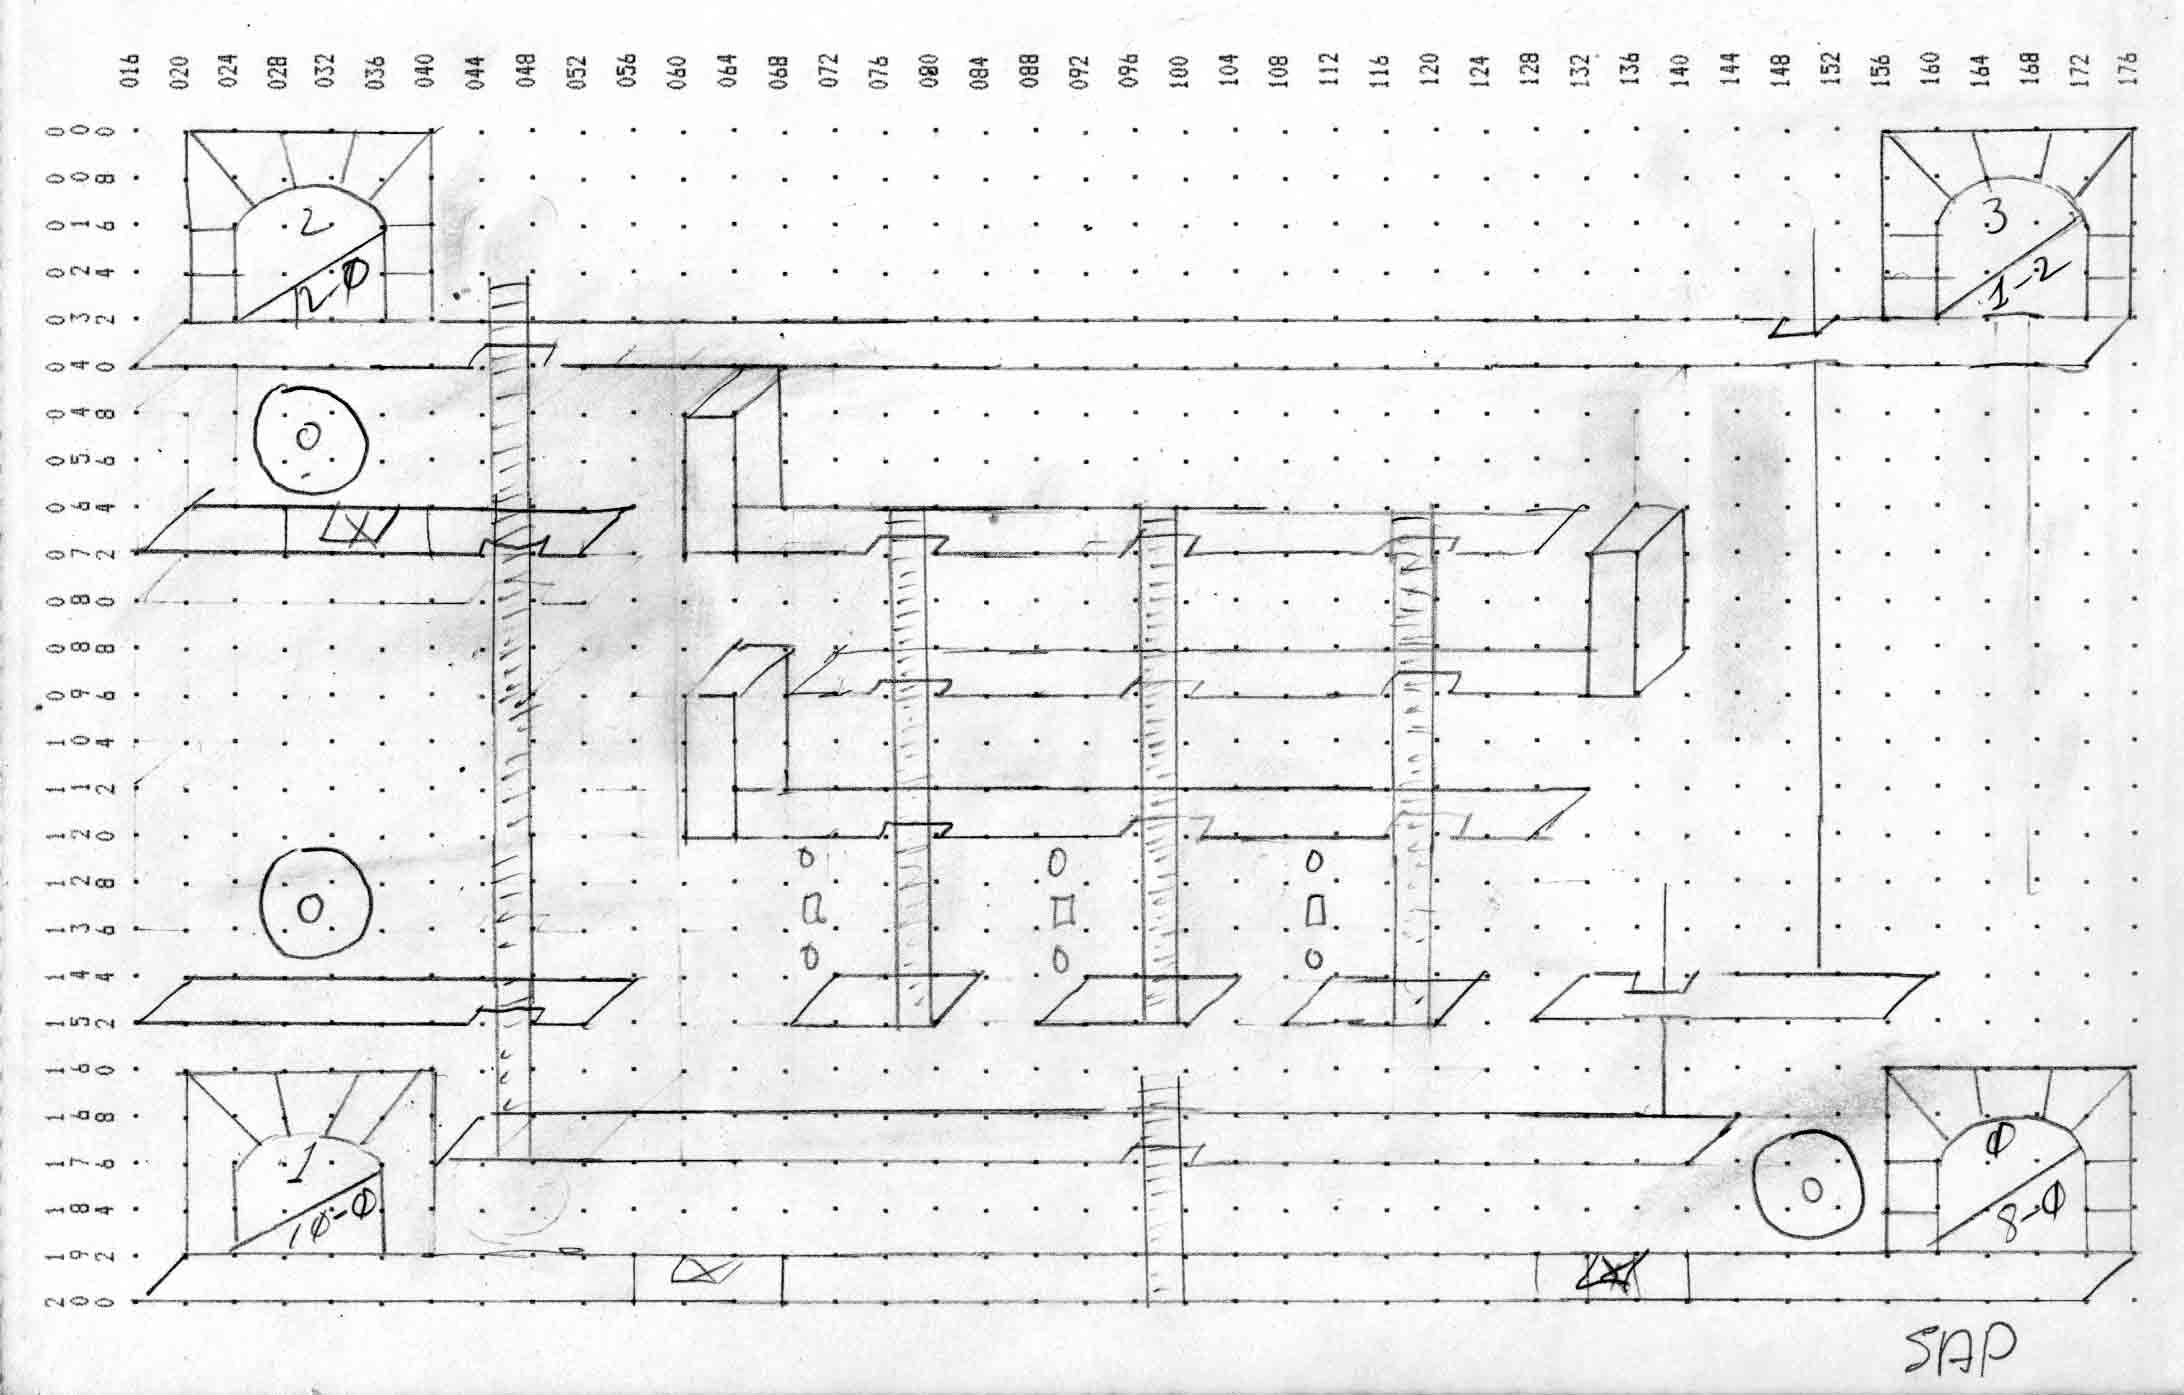 016 020 024 028 032 036 040 044 048 052 056 060 064 068 072 076 080 084 088 092 096 100 104 108 112 116 120 124 128 132 136 140 144 148 152 156 160 164 168 172 176
000
008
016
024
032
040
048
056
064
072
080
088
096
104
112
120
128
136
144
152
160
168
176
184
192
200
2
12-0
3
1-2
1
10-0
0
8-0
SAP